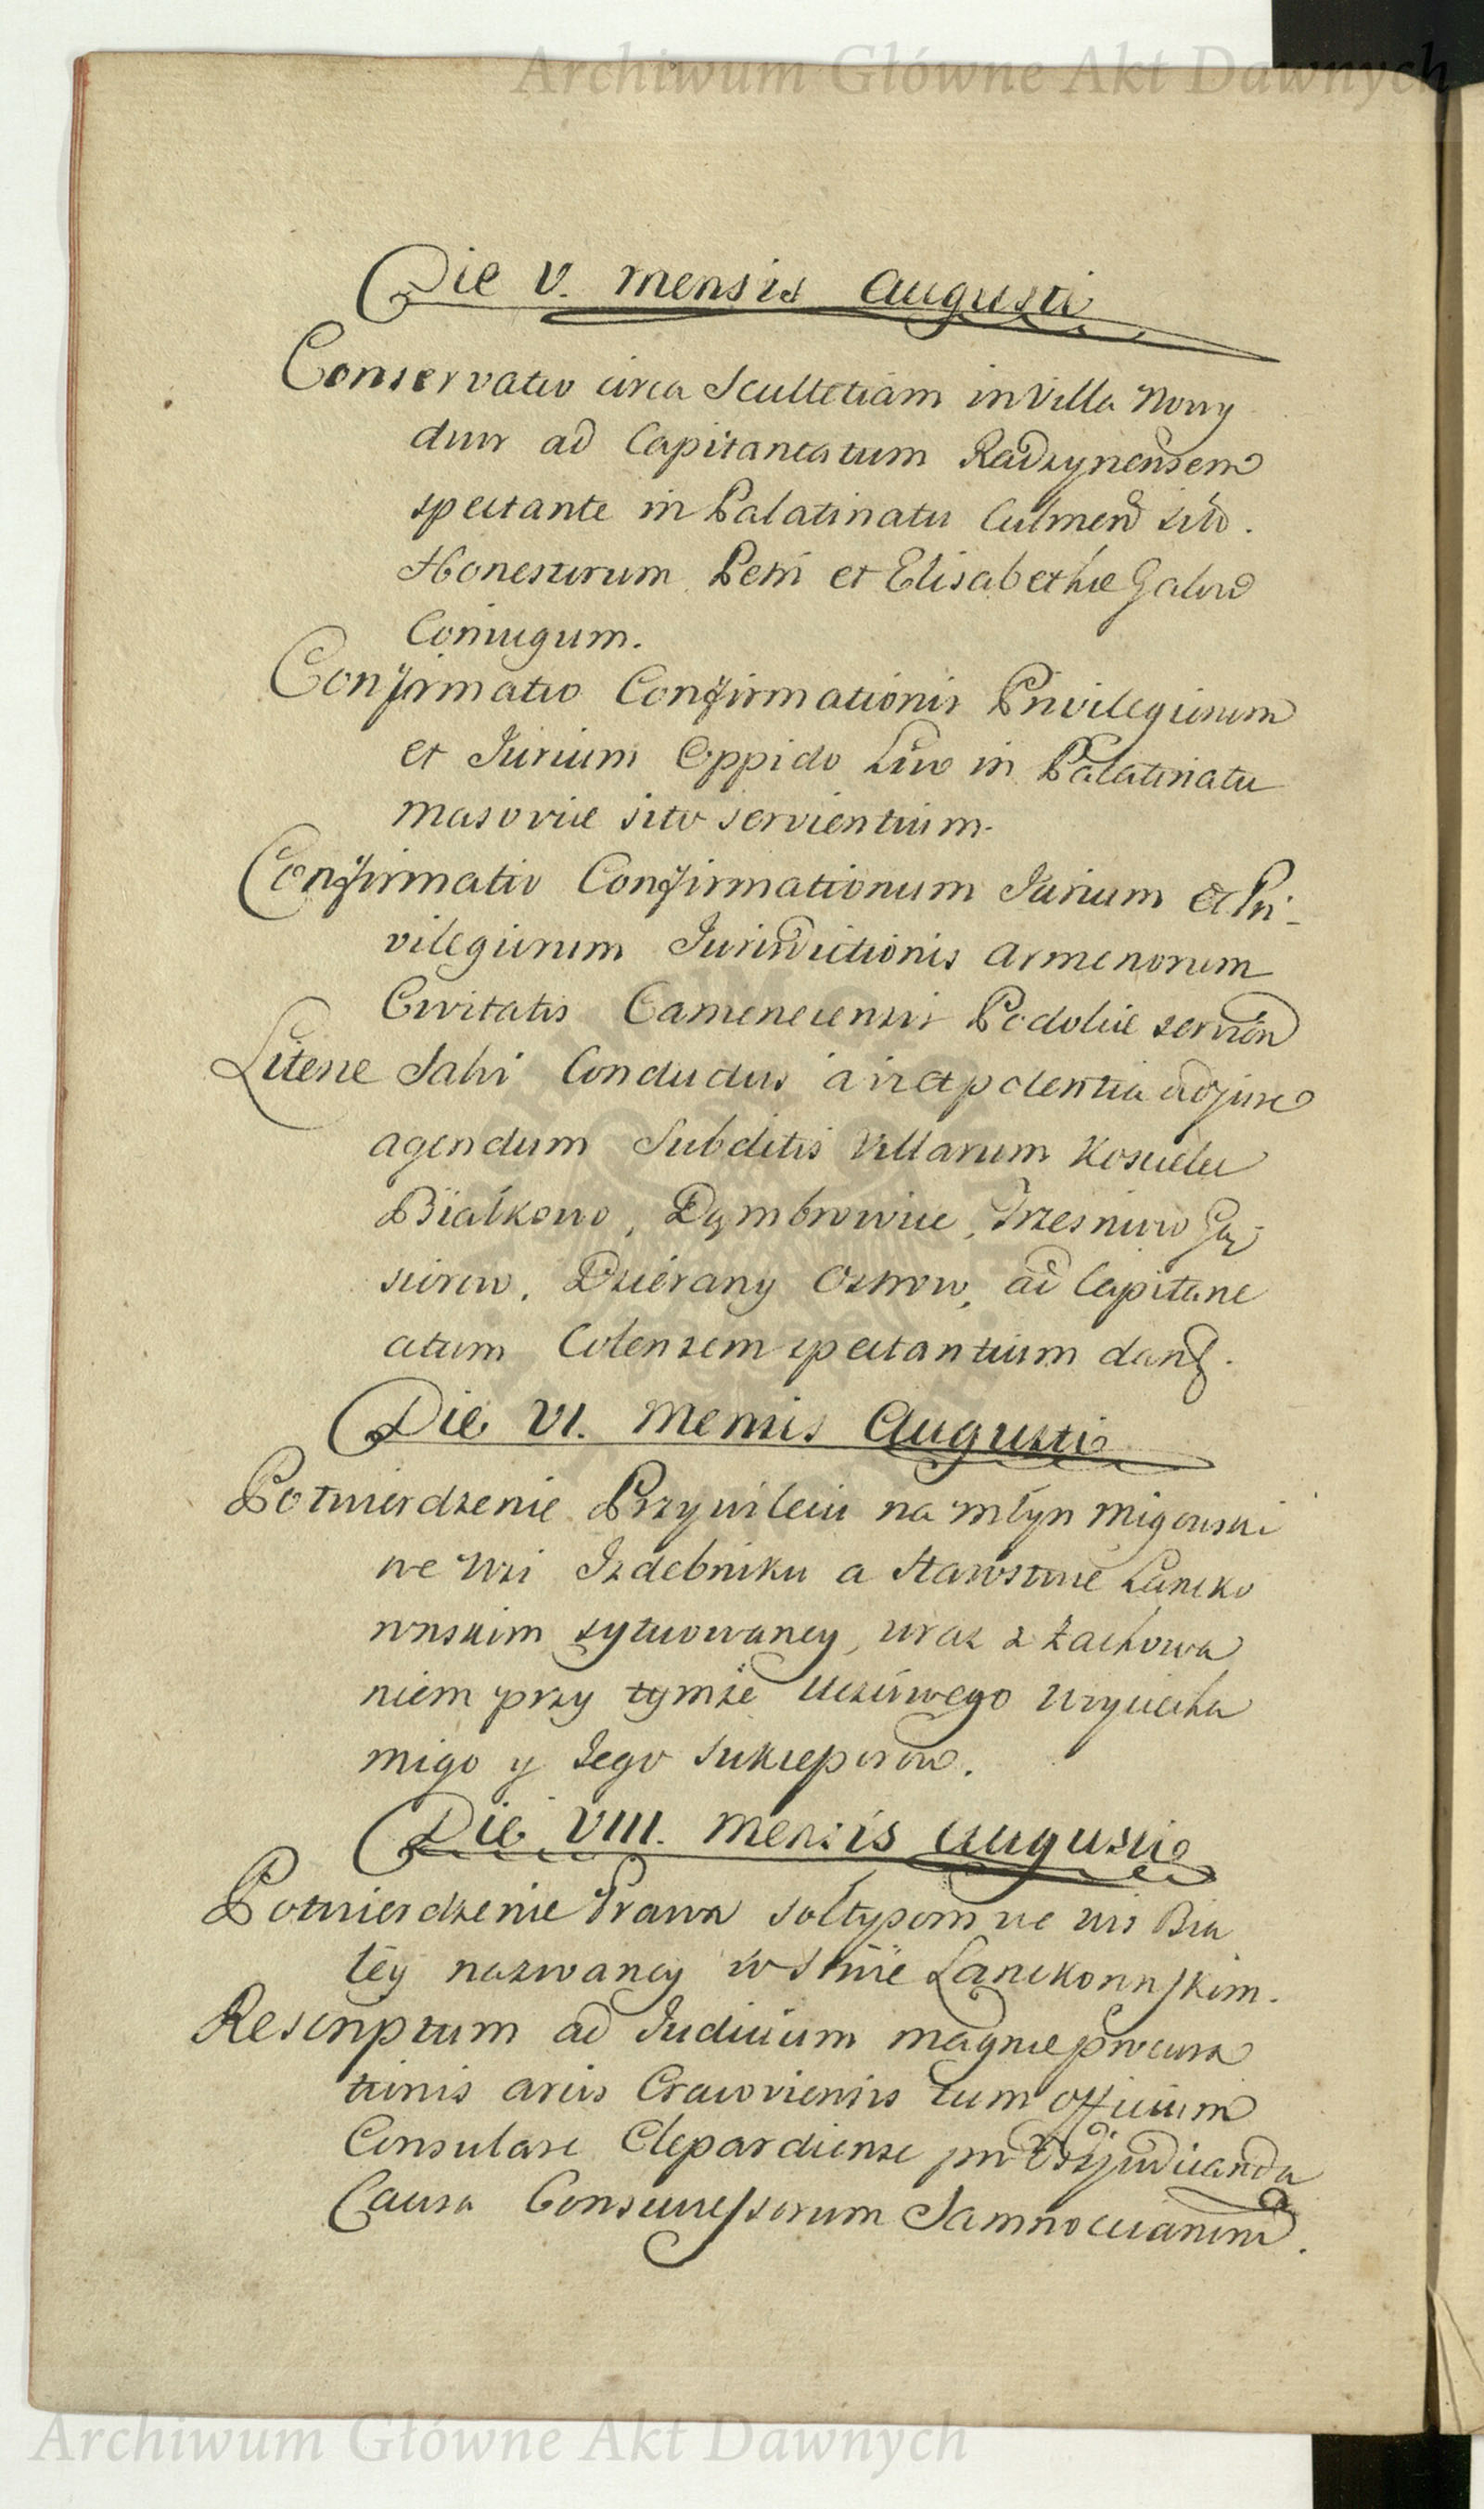 Archiwum Główne Akt Dawnych
Die V. mensis Augusti
Conservatio circa Scultetiam in Villa Nowy
dwor ad Capitaneatum Radzynensem
spectante in Palatinatu Culmen sito.
Honestorum Petri et Elisabethæ Galow
Coniugum.
Confirmatio Confirmationis Privilegiorum
et Iurium Oppido Liw in Palatinatu
Masoviæ sito servientium.
Confirmatio Confirmationum Iurium et Pri-
vilegiorum Iurisdictionis Armenorum
Civitatis Camenecensis Podoliæ servien
Literæ Salvi Conductus a vi et potentia ad jure
agendum Subditis Villarum Koscielec
Białkowo, Dąmbrowice, Trzesniow Gą-
siorow, Dzierany Ostrow, ad Capitane
atum Colensem spectantium dant.
Die VI. Mensis Augusti
Potwierdzenie Przywileiu na młyn Migowski
we Wsi Izdebniku a Starostwie Lancko
ronskim sytuowaney, wraz z Zachowa
niem przy tymże Uczciwego Woyciecha
Migo y Iego Sukcessorow.
Die VIII. Mensis Augusti
Potwierdzenie Prawa sołtysom we wsi Bia
łey nazwaney w Sttwie Lanckoronskim.
Rescriptum ad Iudicium magnæ procura
tionis arcis Cracoviensis tum officium
Consulare Clepardiense pro dijudicanda
Causa Consuccessorum
Archiwum Główne Akt Dawnych